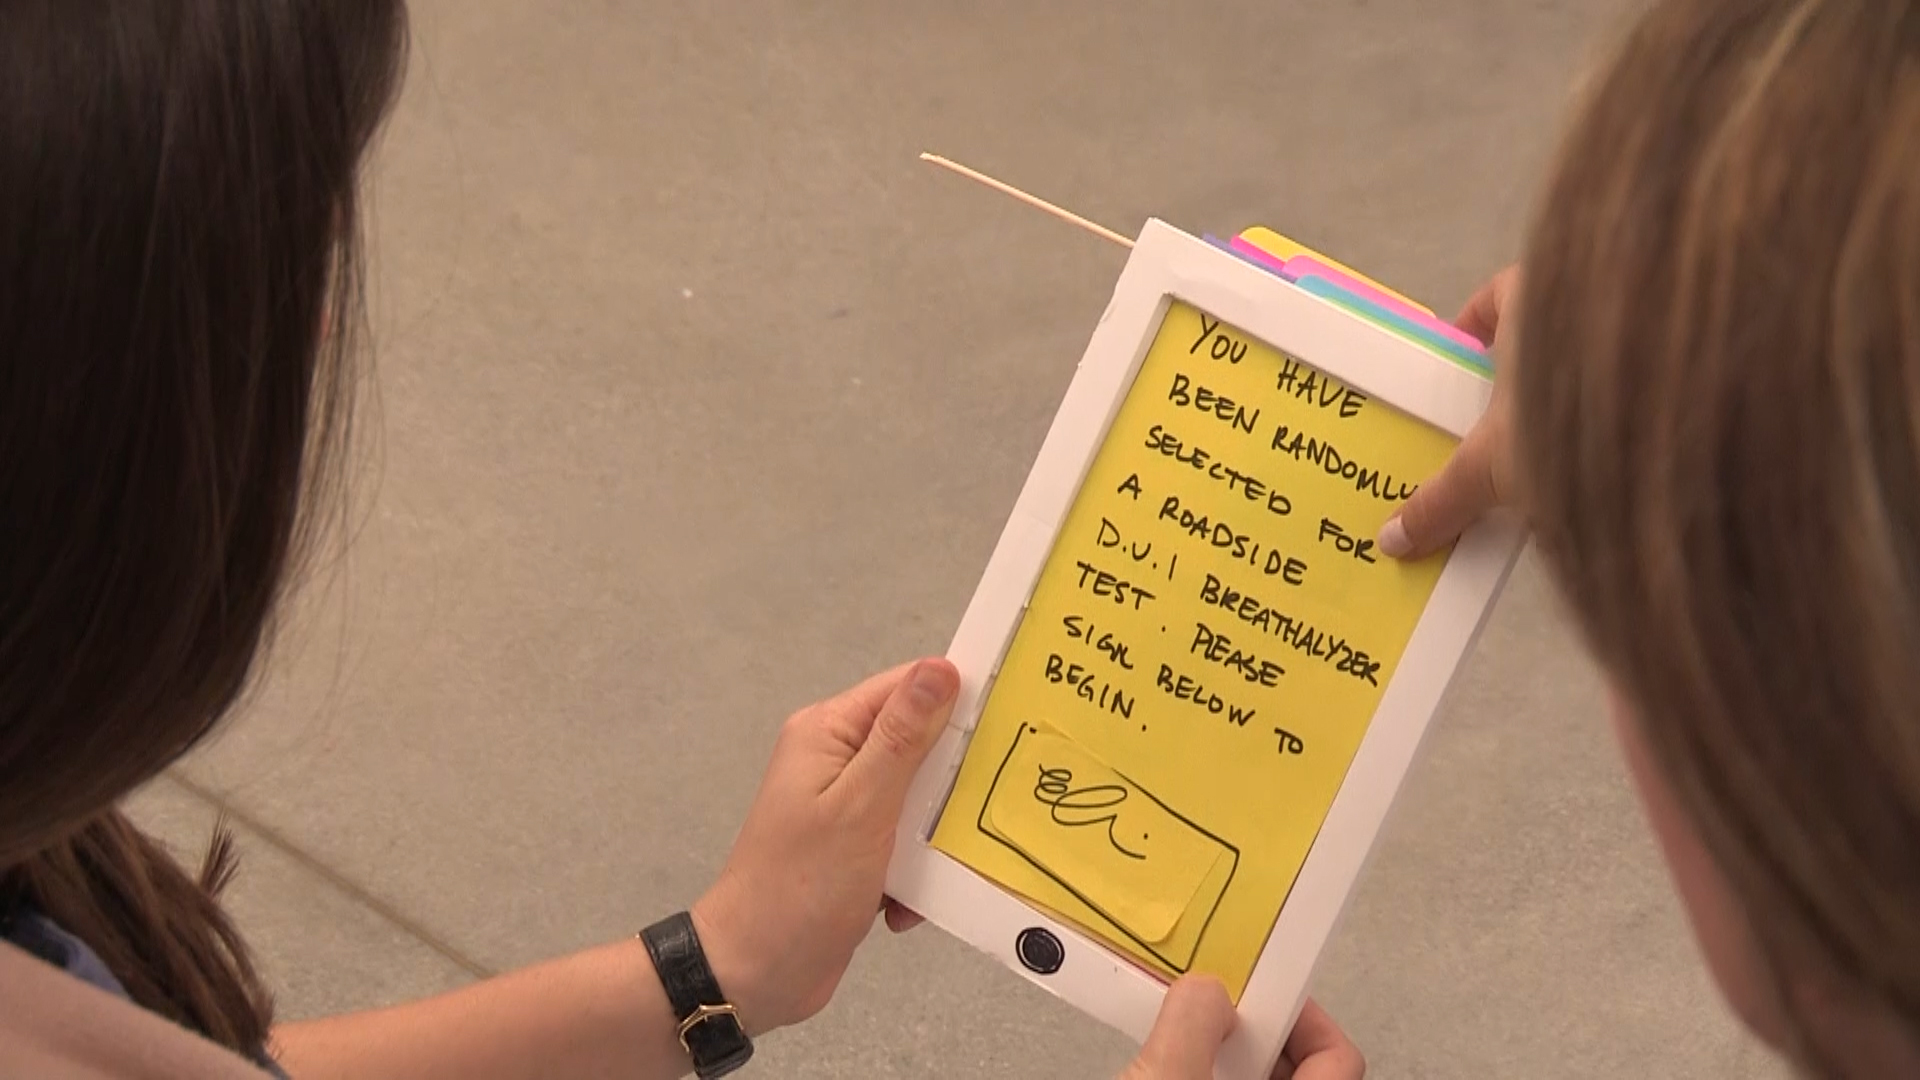 YOU HAVE
BEEN RANDOMLY
SELECTED FOR
A ROADSIDE
D.U.I BREATHALYZER
TEST. PLEASE
SIGN BELOW TO
BEGIN.